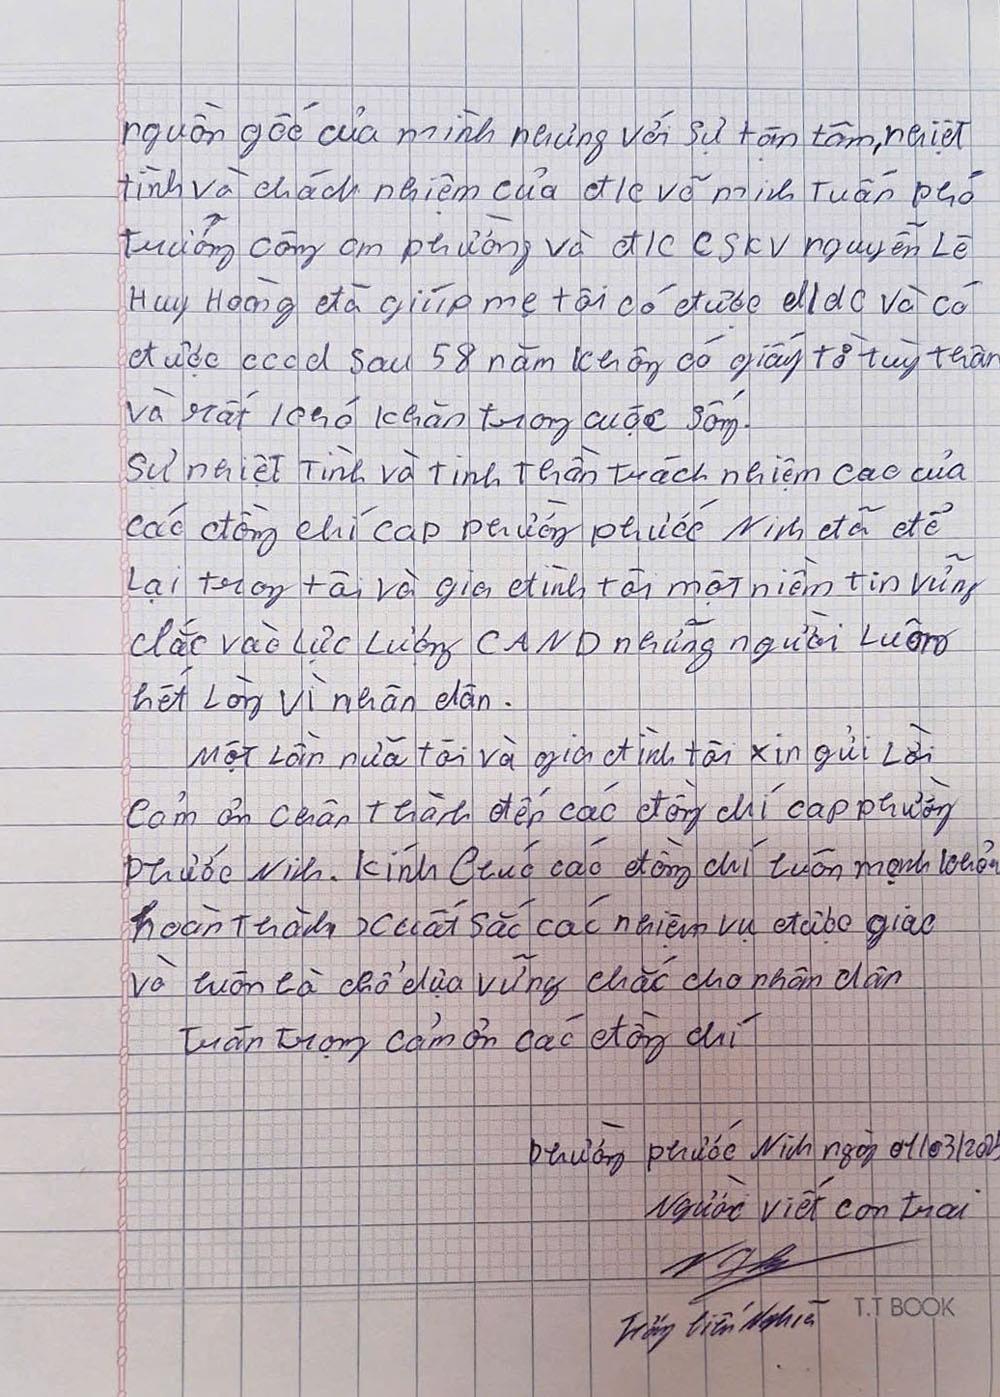 nguồn gốc của mình nhưng với sự tận tâm, nhiệt
tình và chách nhiệm của đ/c võ minh Tuấn phó
trưởng công an phường và đ/c CSKV nguyễn Lê
Huy Hoàng đã giúp mẹ tôi có được đ/dc và có
được cccd sau 58 năm không có giấy tờ tuỳ thân
và rất khó khăn trong cuộc sống.
Sự nhiệt tình và tinh thần trách nhiệm cao của
các đồng chí cap phường phước Ninh đã để
Lại trong tôi và gia đình tôi một niềm tin vững
chắc vào Lực Lượng CAND những người Luôn
hết Lòng vì nhân dân.
Một Lần nữa tôi và gia đình tôi xin gửi Lời
Cảm ơn chân thành đến các đồng chí cap phường
phước Ninh. Kính Chúc các đồng chí luôn mạnh khỏe
hoàn thành xuất sắc các nhiệm vụ được giao
và luôn là chỗ dựa vững chắc cho nhân dân
trân trọng cảm ơn các đồng chí
phường phước Ninh ngày 01/03/2025
Người viết con trai
Nghĩa
T.T BOOK